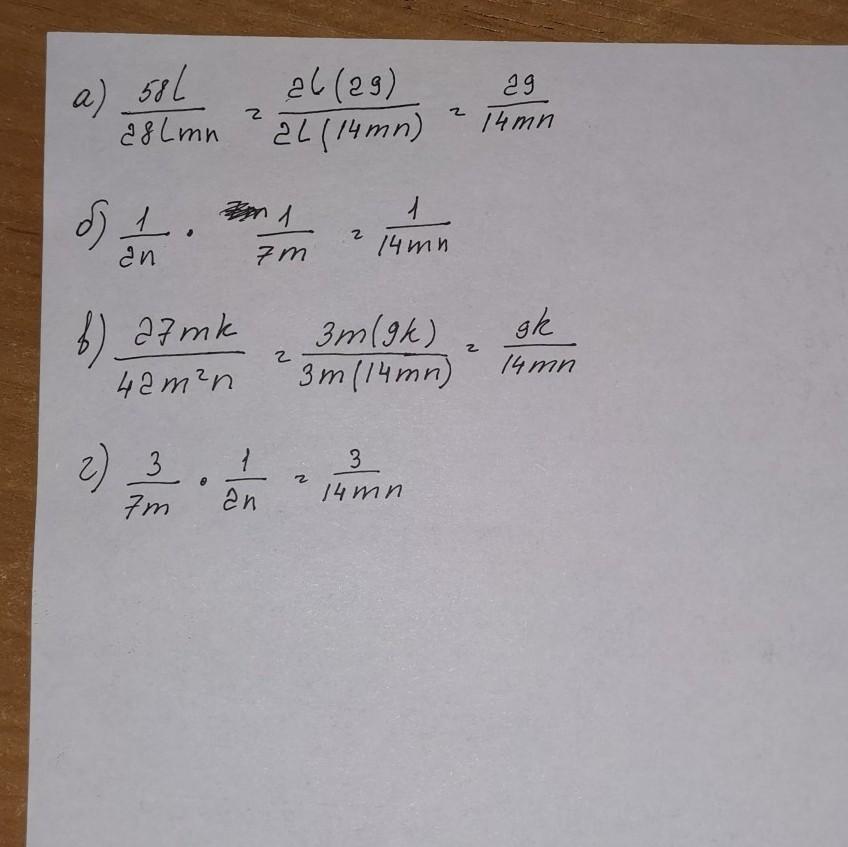 а) 58l/28lmn = 2l(29)/2l(14mn) = 29/14mn
б) 1/2n · 1/7m = 1/14mn
в) 27mk/42m²n = 3m(9k)/3m(14mn) = 9k/14mn
г) 3/7m · 1/2n = 3/14mn